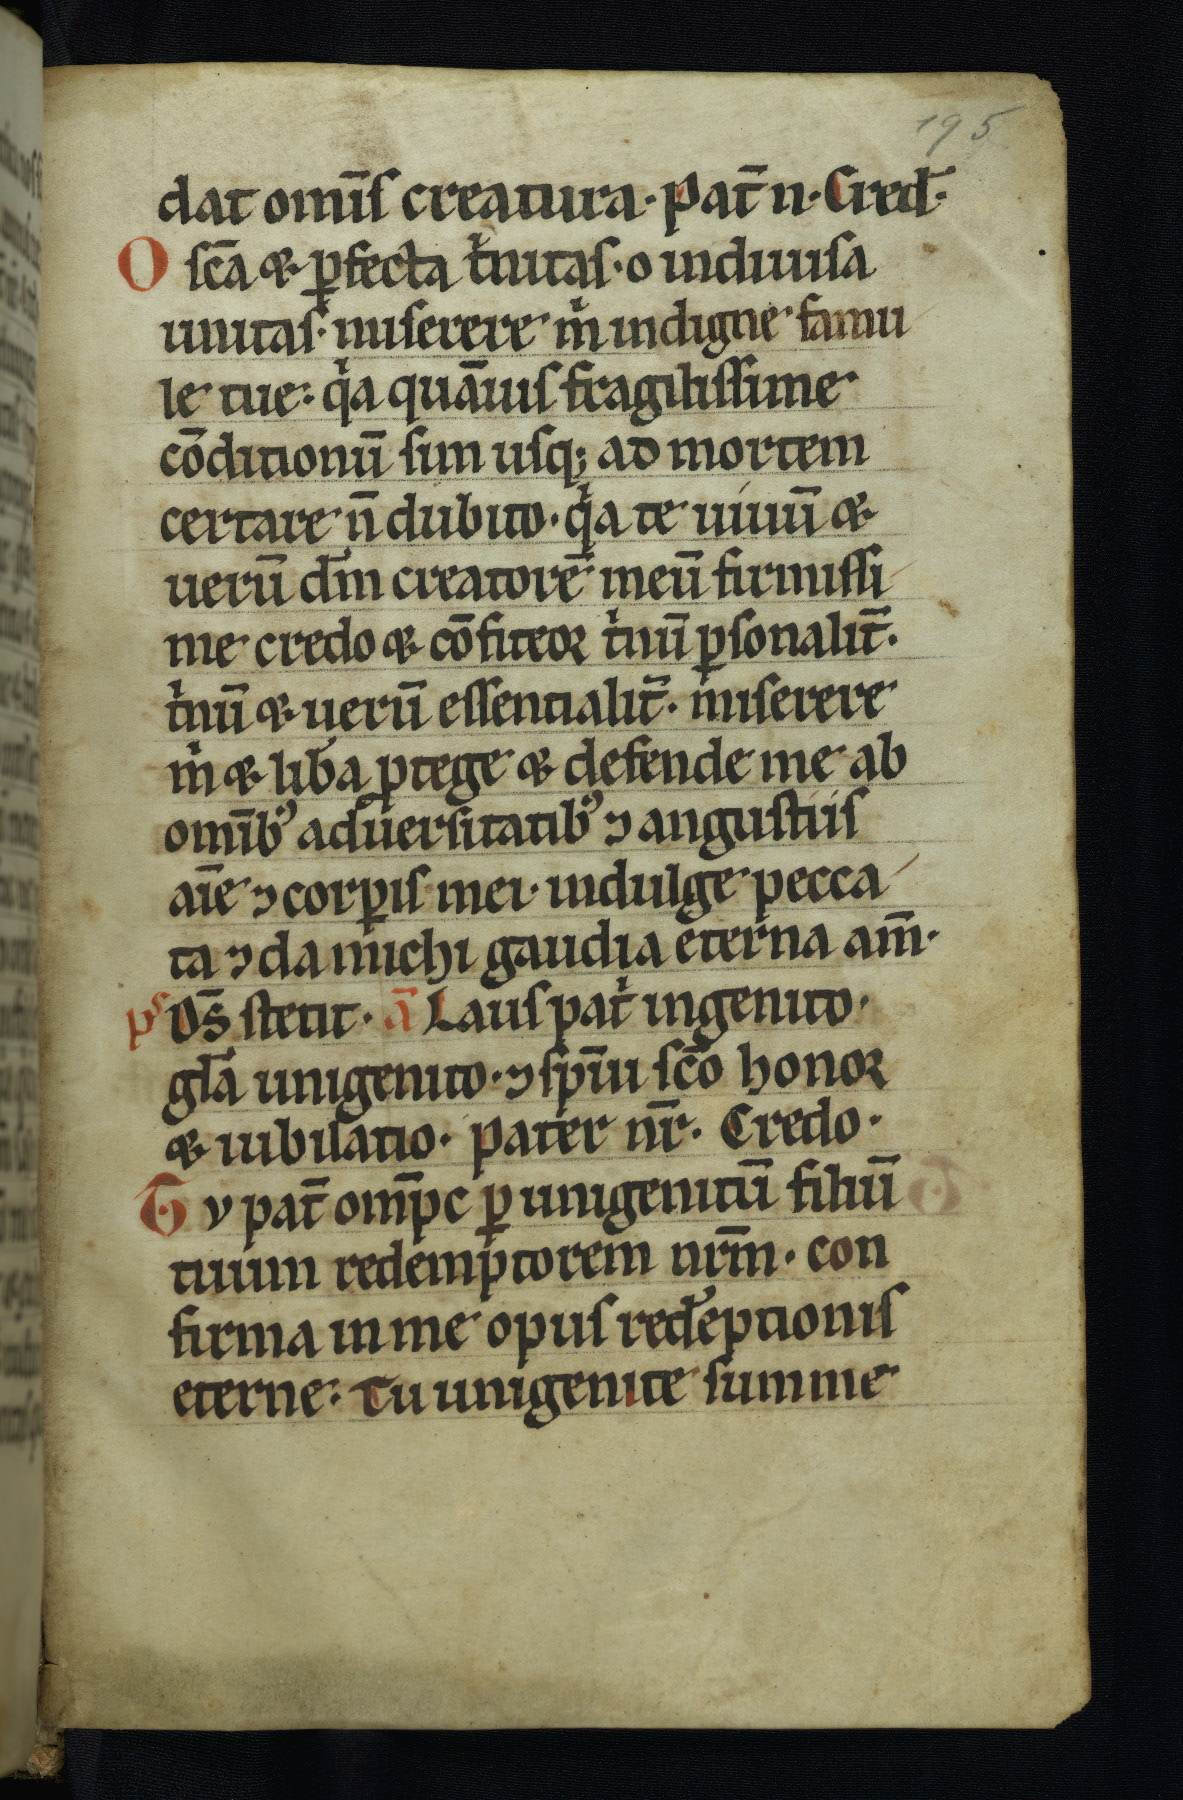 195
dat om̄ıſ creatura · Pat̄ n · Cred̄ ·
O ſc̄a & ꝑfecta tⁱnitaſ · o indiuiſa
unitaſ · miſerere mⁱ indigne famu
le tue : qⁱa quāuiſ fragiliſſime
cōditionū ſim uſq; ad mortem
certare n̄ dubito · qⁱa te uiuū &
uerū d̄m creatorē meū firmiſſi
me credo & cōfiteor tⁱnū ꝑſonalit̄ ·
tⁱnū & uerū eſſentialit̄ · miſerere
mⁱ & lib̾a ꝓtege & defende me ab
om̄ib᾽ aduerſitatib᾽ ⁊ anguſtiiſ
aīe ⁊ corꝑiſ mei · indulge pecca
ta ⁊ da michi gaudia eterna am̄ ·
pſ D̄s ſtetit · ā Lauſ patⁱ ingenito ·
gl̄a unigenito · ⁊ ſpīu ſc̄o honor
& iubilatio · Pater nr̄ · Credo ·
T v pat̄ om̄pc ꝑ unigenitū filiū
tuum redemptorem nr̄m · con
firma in me opuſ redēptioniſ
eterne : Tu unigenite ſumme